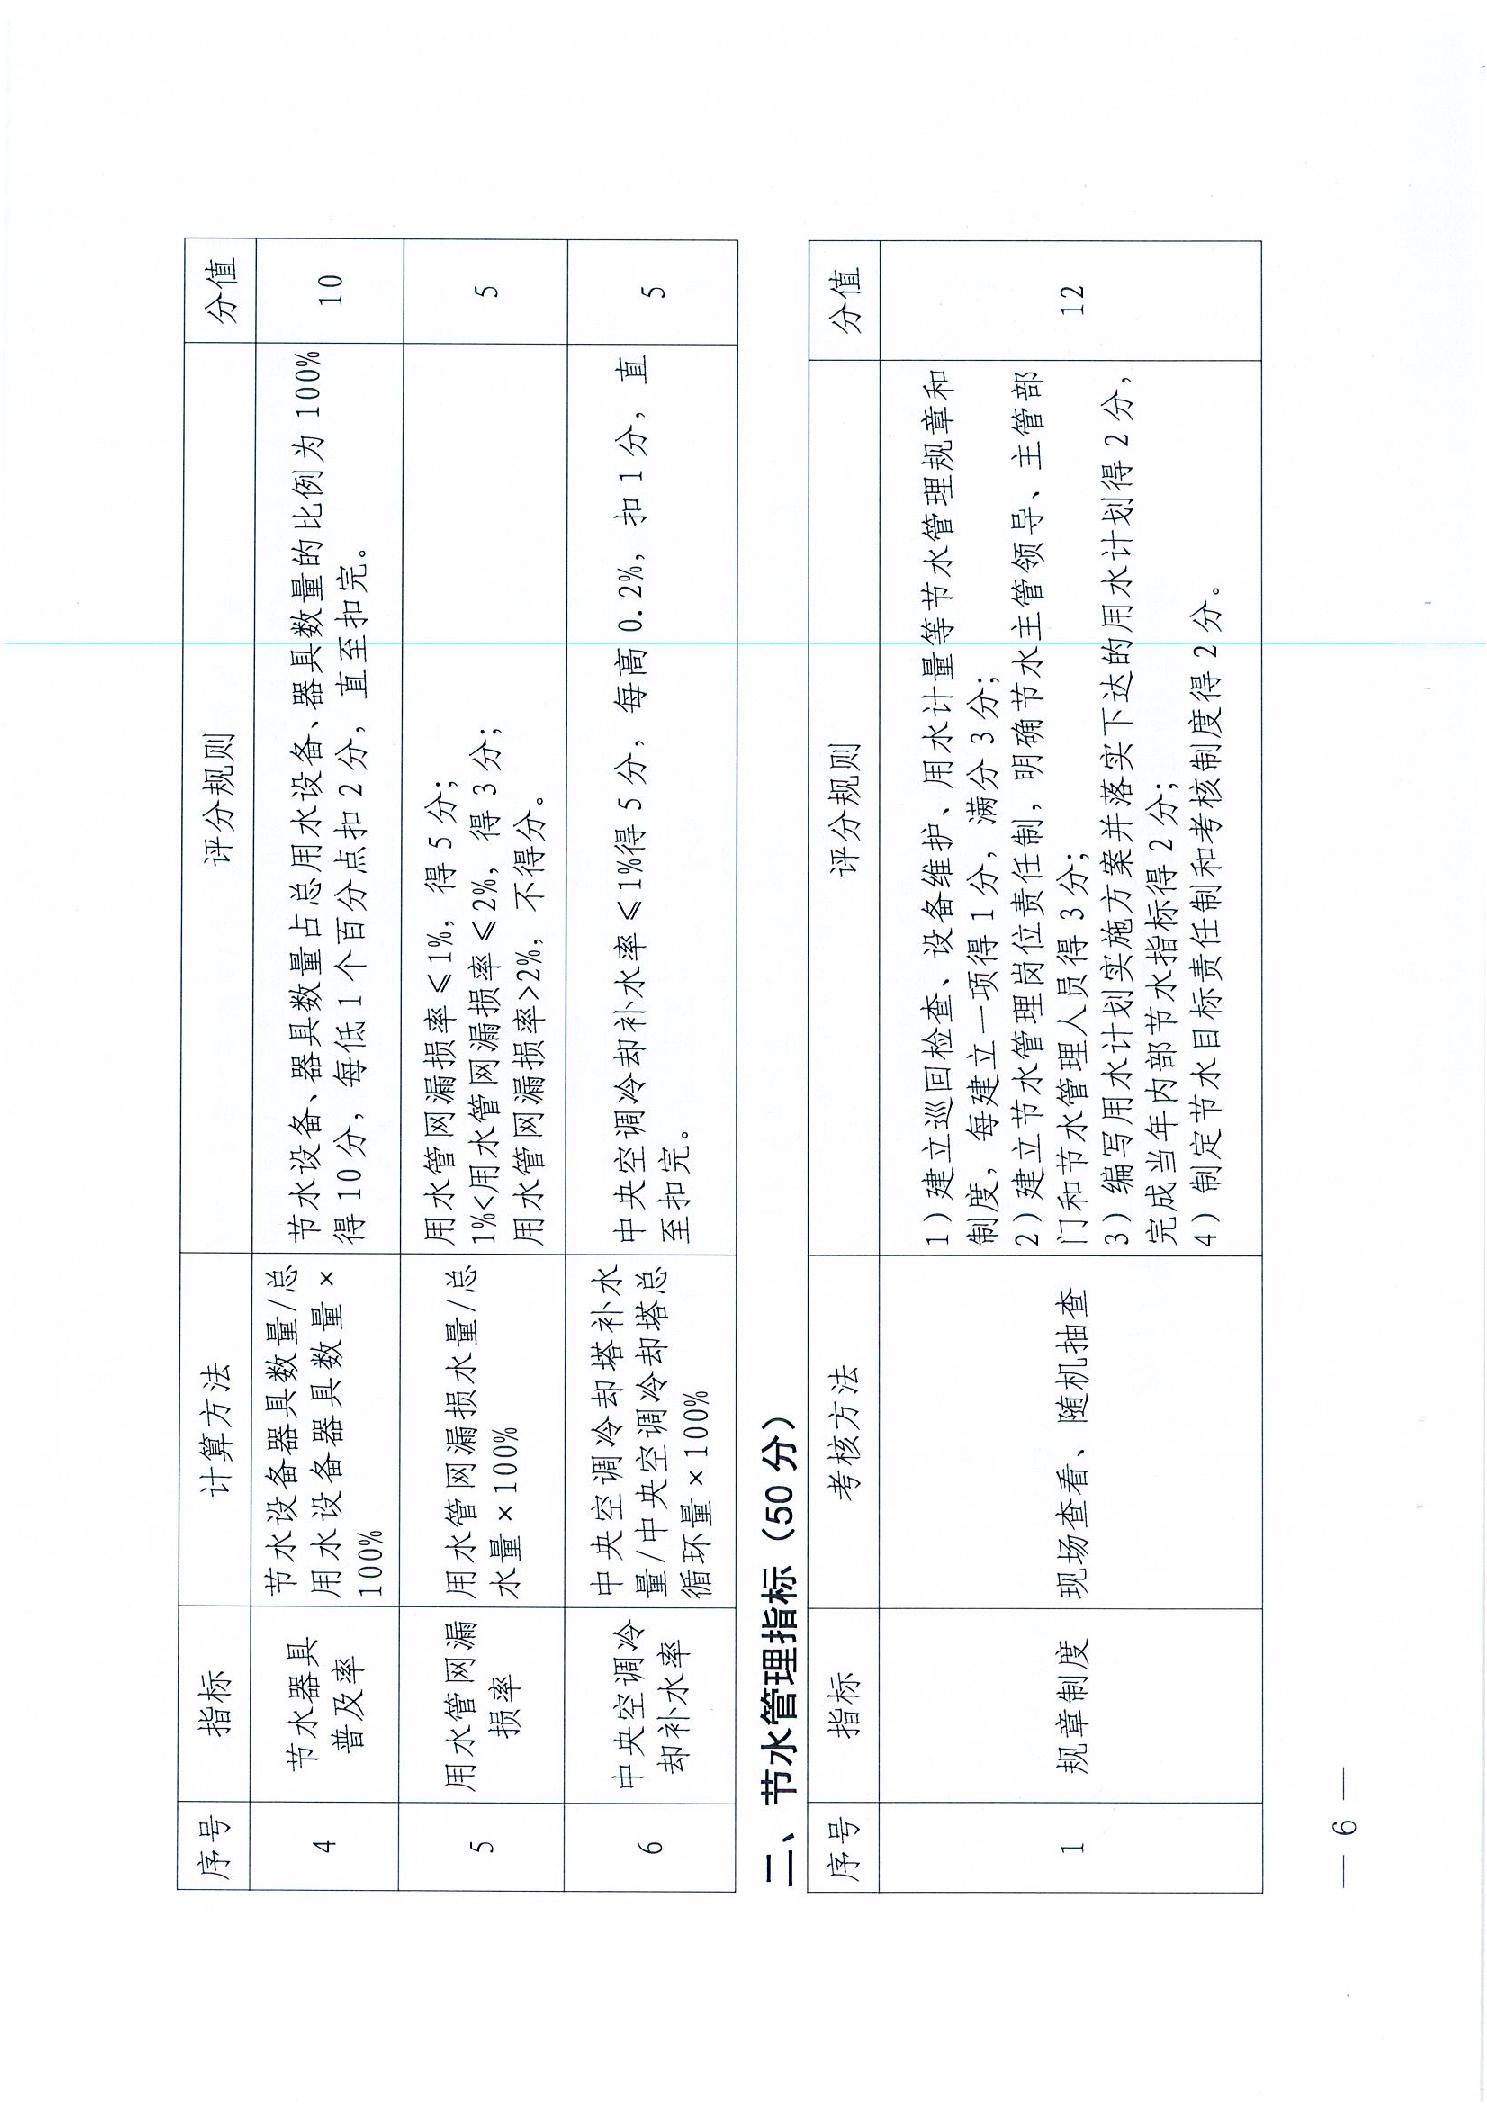 序号 指标 计算方法 评分规则 分值
4
节水器具
普及率
节水设备器具数量/总
用水设备器具数量×
100%
节水设备、器具数量占总用水设备、器具数量的比例为100%
得10分，每低1个百分点扣2分，直至扣完。
10
5
用水管网漏
损率
用水管网漏损水量/总
水量×100%
用水管网漏损率≤1%，得5分；
1%<用水管网漏损率≤2%，得3分；
用水管网漏损率>2%，不得分。
5
6
中央空调冷
却补水率
中央空调冷却塔补水
量/中央空调冷却塔总
循环量×100%
中央空调冷却补水率≤1%得5分，每高0.2%，扣1分，直
至扣完。
5
二、节水管理指标（50分）
序号 指标 考核方法 评分规则 分值
1
规章制度
现场查看、随机抽查
1）建立巡回检查、设备维护、用水计量等节水管理规章和
制度，每建立一项得1分，满分3分；
2）建立节水管理岗位责任制，明确节水主管领导、主管部
门和节水管理人员得3分；
3）编写用水计划实施方案并落实下达的用水计划得2分，
完成当年内部节水指标得2分；
4）制定节水目标责任制和考核制度得2分。
12
— 6 —